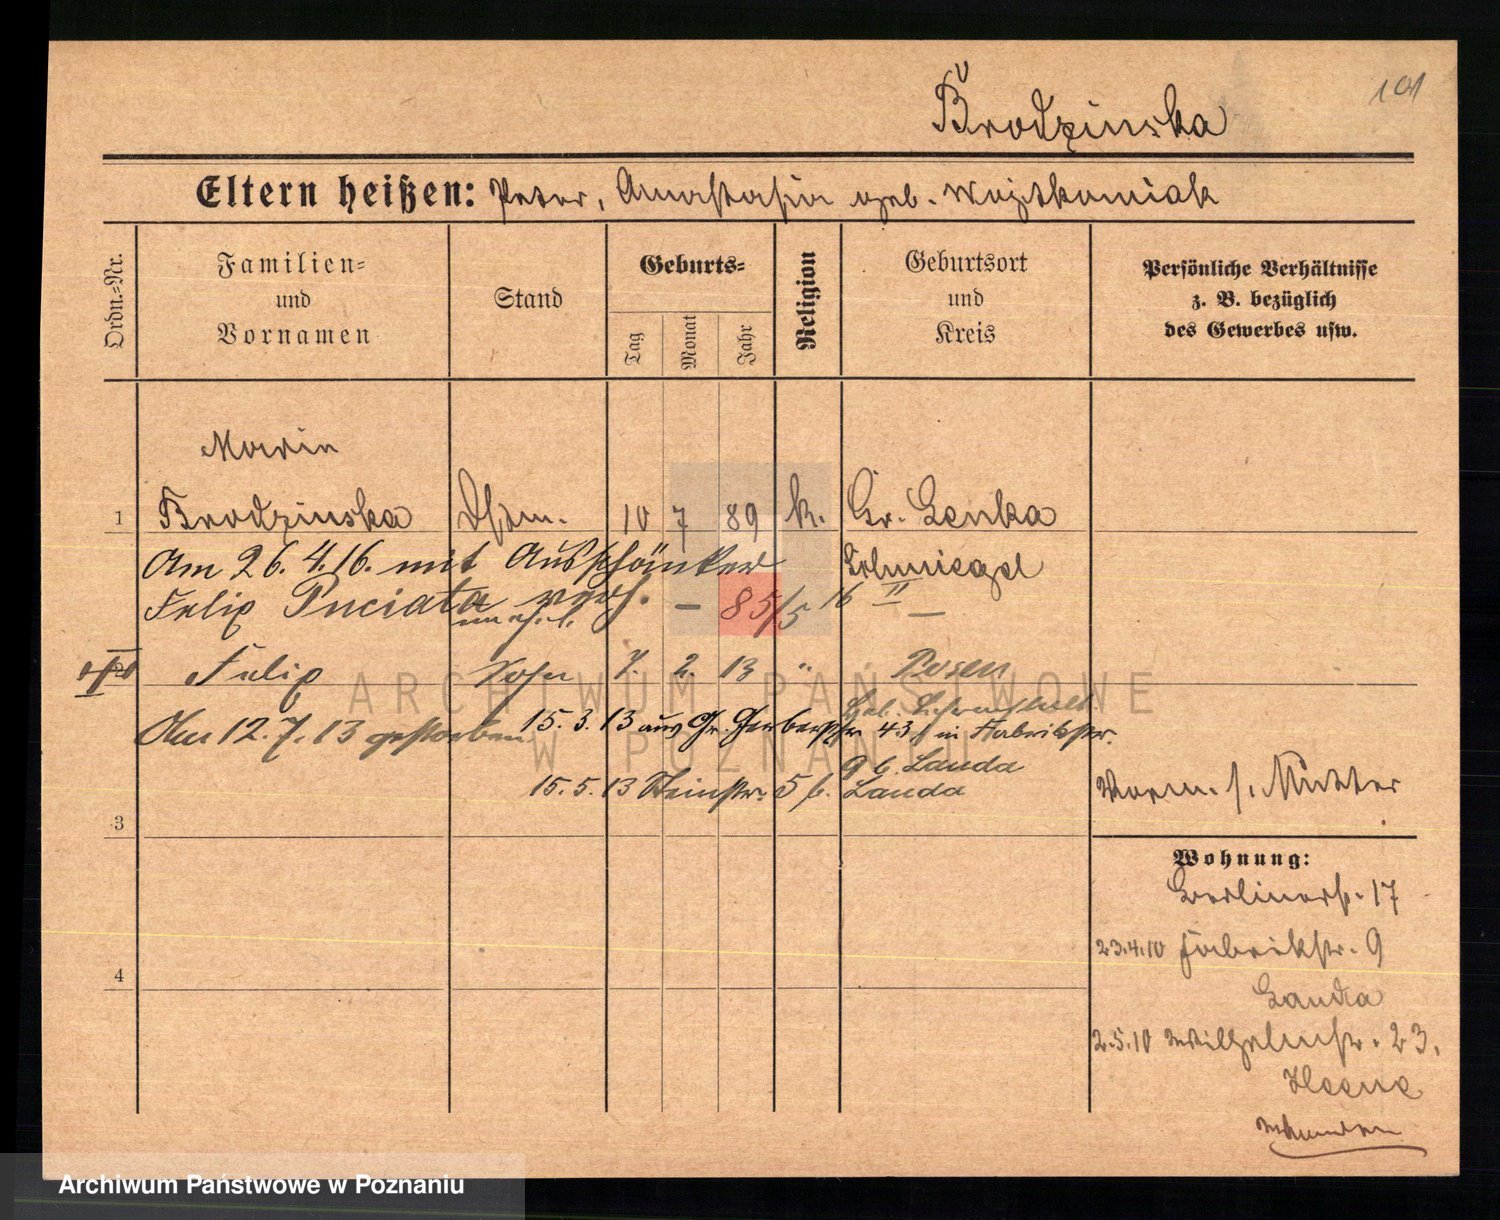 Brodzinska
101
Eltern heißen: Peter, Anastasia geb. Wojtkowiak
Ordn.-Nr.
Familien- und Vornamen
Stand
Geburts-
Tag
Monat
Jahr
Religion
Geburtsort und Kreis
Persönliche Verhältnisse z. B. bezüglich des Gewerbes usw.
Maria
1 Brodzinska 10 7 89 k. Gr. Lenka
Am 26.4.16. mit Ausschänker Schmiegel
Felix Puciata – 85/5 16 II –
unehel.
2 Felix Sohn 7. 2. 13 " Posen
Am 12.7.13 gestorben
15.3.13 aus Gr. Gerberstr 43 in Fabrikstr.
9 b. Lauda
15.5.13 Kleinstr. 5 b. Lauda
Vorm. s. Mutter
3
Wohnung:
Berlinerstr. 17
23.4.10 Fabrikstr. 9
Lauda
4
2.5.10 Wilhelmstr. 23.
ARCHIWUM PAŃSTWOWE
W POZNANIU
Archiwum Państwowe w Poznaniu